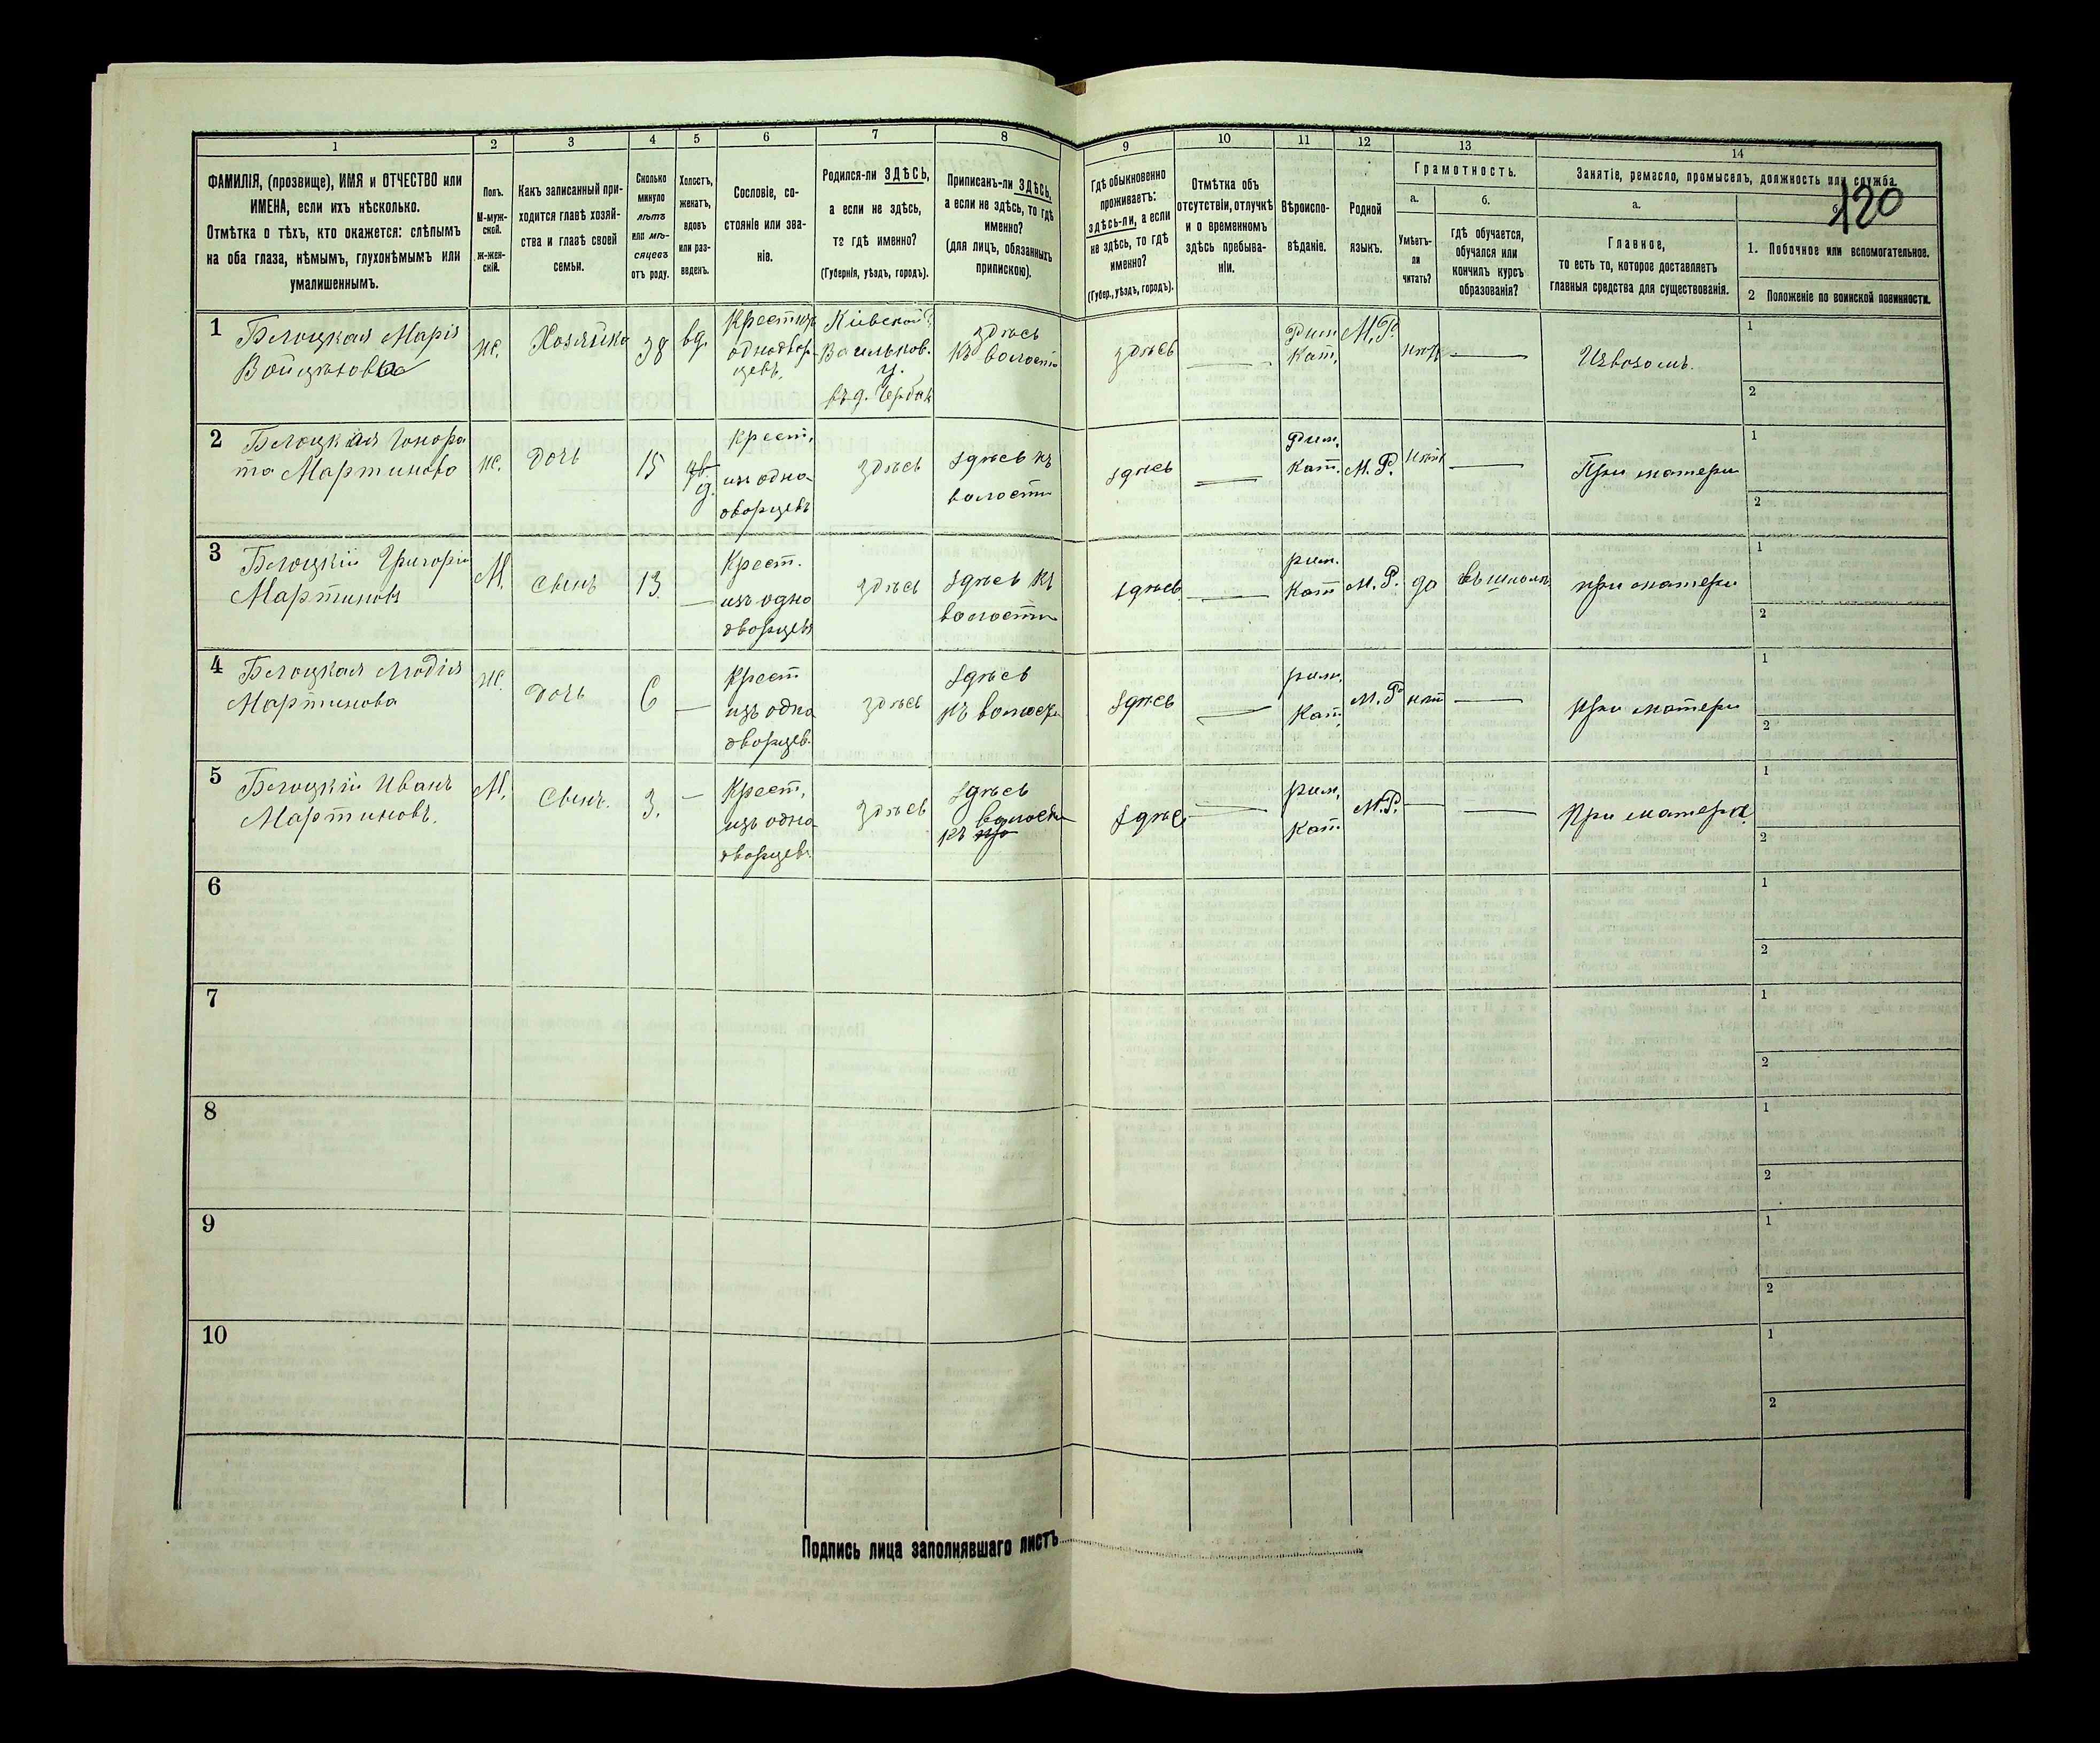 1
2
3
4
5
6
7
8
9
10
11
12
13
14
ФАМИЛІЯ, (прозвище), ИМЯ и ОТЧЕСТВО или
ИМЕНА, если ихъ нѣсколько.
Отмѣтка о тѣхъ, кто окажется: слѣпымъ
на оба глаза, нѣмымъ, глухонѣмымъ или
умалишеннымъ.
Полъ.
М-муж-
ской.
ж-жен-
скій.
Какъ записанный при-
ходится главѣ хозяй-
ства и главѣ своей
семьи.
Сколько
минуло
лѣтъ
или мѣ-
сяцевъ
отъ роду.
Холостъ,
женатъ,
вдовъ
или раз-
веденъ.
Сословіе, со-
стояніе или зва-
ніе.
Родился-ли ЗДѢСЬ,
а если не здѣсь,
то гдѣ именно?
(Губернія, уѣздъ, городъ).
Приписанъ-ли ЗДѢСЬ,
а если не здѣсь, то гдѣ
именно?
(для лицъ, обязанныхъ
припискою).
Гдѣ обыкновенно
проживаетъ:
здѣсь-ли, а если
не здѣсь, то гдѣ
именно?
(Губер., уѣздъ, городъ).
Отмѣтка объ
отсутствіи, отлучкѣ
и о временномъ
здѣсь пребыва-
ніи.
Вѣроиспо-
вѣданіе.
Родной
языкъ.
Грамотность.
а.
Умѣетъ-
ли
читать?
б.
гдѣ обучается,
обучался или
кончилъ курсъ
образованія?
Занятіе, ремесло, промыселъ, должность или служба.
120
а.
Главное,
то есть то, которое доставляетъ
главныя средства для существованія.
1. Побочное или вспомогательное.
2 Положеніе по воинской повинности.
1
Бѣлоцкая Марія
Войцѣхова
ж.
Хозяйка
38
вд.
Крест. изъ
однодвор-
цевъ.
Кіевской г.
Васильков.
у.
въ д.
здѣсь
къ волости
здѣсь
Рим.
Кат.
М.Р.
нѣтъ
Извозомъ.
1
2
2
Бѣлоцкая Гонора
та Мартинова
ж.
дочь
15
д.
Крест.
изъ одно
дворцевъ
здѣсь
здѣсь къ
волости
здѣсь
Рим.
Кат.
М.Р.
нѣтъ
При матери
1
2
3
Бѣлоцкій Григорій
Мартиновъ
М.
Сынъ
13.
Крест.
изъ одно
дворцевъ
здѣсь
здѣсь къ
волости
здѣсь
рим.
Кат
М.Р.
да
въ школѣ
при матери
1
2
4
Бѣлоцкая Людвія
Мартинова
ж.
дочь
6
Крест
изъ одно
дворцев.
здѣсь
здѣсь
къ волости
здѣсь
рим.
Кат.
М.Р
нѣт
При матери
1
2
5
Бѣлоцкій Иванъ
Мартиновъ.
М.
Сынъ.
3.
Крест.
изъ одно
дворцевъ.
здѣсь
здѣсь
волости
къ
здѣсь
рим.
Кат.
М.Р.
При матери
1
2
6
1
2
7
1
2
8
1
2
9
1
2
10
1
2
Подпись лица заполнявшаго листъ